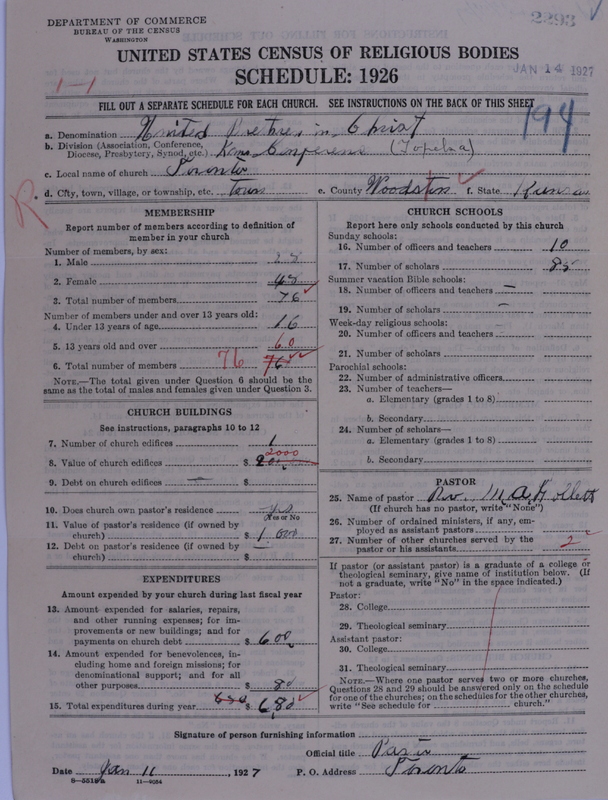 DEPARTMENT OF COMMERCE
BUREAU OF THE CENSUS
WASHINGTON
2293
JAN 14 1927
UNITED STATES CENSUS OF RELIGIOUS BODIES
SCHEDULE: 1926
1-1
FILL OUT A SEPARATE SCHEDULE FOR EACH CHURCH. SEE INSTRUCTIONS ON THE BACK OF THIS SHEET
194
a. Denomination United Brethren in Christ
b. Division (Association, Conference, Diocese, Presbytery, Synod, etc.) Kans Conference (Topeka)
c. Local name of church Toronto
d. City, town, village, or township, etc. town e. County Woodson f. State Kansas
R
MEMBERSHIP
Report number of members according to definition of member in your church
Number of members, by sex:
1. Male 28
2. Female 48
3. Total number of members 76
Number of members under and over 13 years old:
4. Under 13 years of age 16
5. 13 years old and over 60
6. Total number of members 76 76
NOTE.—The total given under Question 6 should be the same as the total of males and females given under Question 3.
CHURCH BUILDINGS
See instructions, paragraphs 10 to 12
7. Number of church edifices 1
2000
8. Value of church edifices $
9. Debt on church edifices — $
10. Does church own pastor's residence? yes
(Yes or No)
11. Value of pastor's residence (if owned by church) $ 1,000
12. Debt on pastor's residence (if owned by church) $ —
EXPENDITURES
Amount expended by your church during last fiscal year
13. Amount expended for salaries, repairs, and other running expenses; for improvements or new buildings; and for payments on church debt $ 600
14. Amount expended for benevolences, including home and foreign missions; for denominational support; and for all other purposes $ 80
15. Total expenditures during year 680 $ 680
CHURCH SCHOOLS
Report here only schools conducted by this church
Sunday schools:
16. Number of officers and teachers 10
17. Number of scholars 85
Summer vacation Bible schools:
18. Number of officers and teachers —
19. Number of scholars —
Week-day religious schools:
20. Number of officers and teachers
21. Number of scholars
Parochial schools:
22. Number of administrative officers
23. Number of teachers—
a. Elementary (grades 1 to 8)
b. Secondary
24. Number of scholars—
a. Elementary (grades 1 to 8)
b. Secondary
PASTOR
25. Name of pastor Rev. M. A.
(If church has no pastor, write "None")
26. Number of ordained ministers, if any, employed as assistant pastors
27. Number of other churches served by the pastor or his assistants 2
If pastor (or assistant pastor) is a graduate of a college or theological seminary, give name of institution below. (If not a graduate, write "No" in the space indicated.)
Pastor:
28. College
29. Theological seminary
Assistant pastor:
30. College
31. Theological seminary
NOTE.—Where one pastor serves two or more churches, Questions 28 and 29 should be answered only on the schedule for one of the churches; on the schedules for the other churches, write "See schedule for church."
Signature of person furnishing information
Official title Pastor
Date Jan 11, 1927 P. O. Address Toronto
8-5518a 11-9084